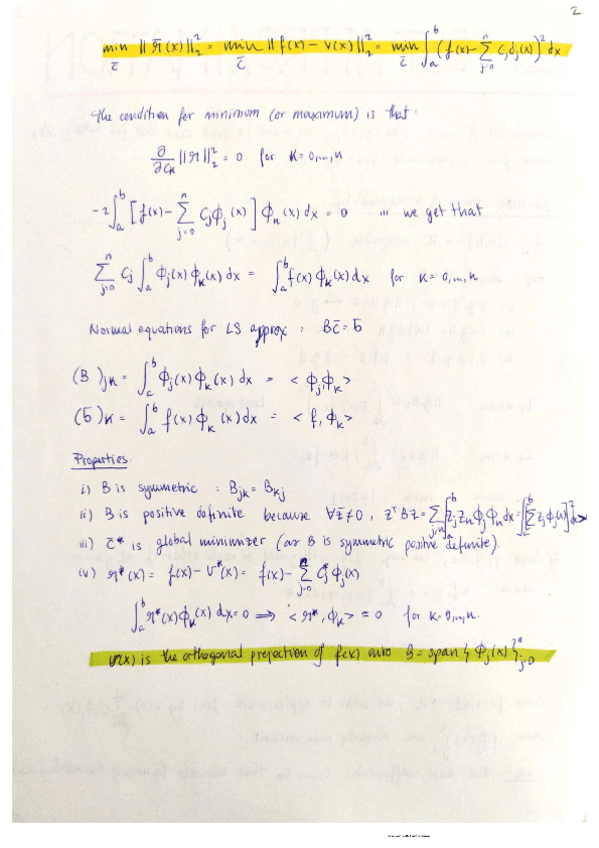 2
min_c̄ ‖r̄(x)‖₂² = min_c̄ ‖f(x) − v(x)‖₂² = min_c̄ ∫_a^b (f(x) − Σ_{j=0}^n c_j ϕ_j(x))² dx
The condition for minimum (or maximum) is that:
∂/∂c_k ‖r‖₂² = 0 for k=0,...,n
−2∫_a^b [f(x) − Σ_{j=0}^n c_j ϕ_j(x)] ϕ_n(x) dx = 0 ... we get that
Σ_{j=0}^n c_j ∫_a^b ϕ_j(x) ϕ_k(x) dx = ∫_a^b f(x) ϕ_k(x) dx for k=0,...,n
Normal equations for LS approx : Bc̄ = b̄
(B)_jk = ∫_a^b ϕ_j(x) ϕ_k(x) dx = <ϕ_j, ϕ_k>
(b̄)_k = ∫_a^b f(x) ϕ_k(x) dx = <f, ϕ_k>
Properties
i) B is symmetric : B_jk = B_kj
ii) B is positive definite because ∀z̄≠0, z^T B z = Σ_{j,n} ∫_a^b z_j z_n ϕ_j ϕ_n dx = ∫_a^b [Σ z_j ϕ_j(x)]² dx >
iii) c̄* is global minimizer (as B is symmetric positive definite).
iv) r*(x) = f(x) − v*(x) = f(x) − Σ_{j=0}^n c_j* ϕ_j(x)
∫_a^b r*(x) ϕ_k(x) dx = 0 ⟹ <r*, ϕ_k> = 0 for k=0,...,n.
v(x) is the orthogonal projection of f(x) into B = span{ϕ_j(x)}_{j=0}^n